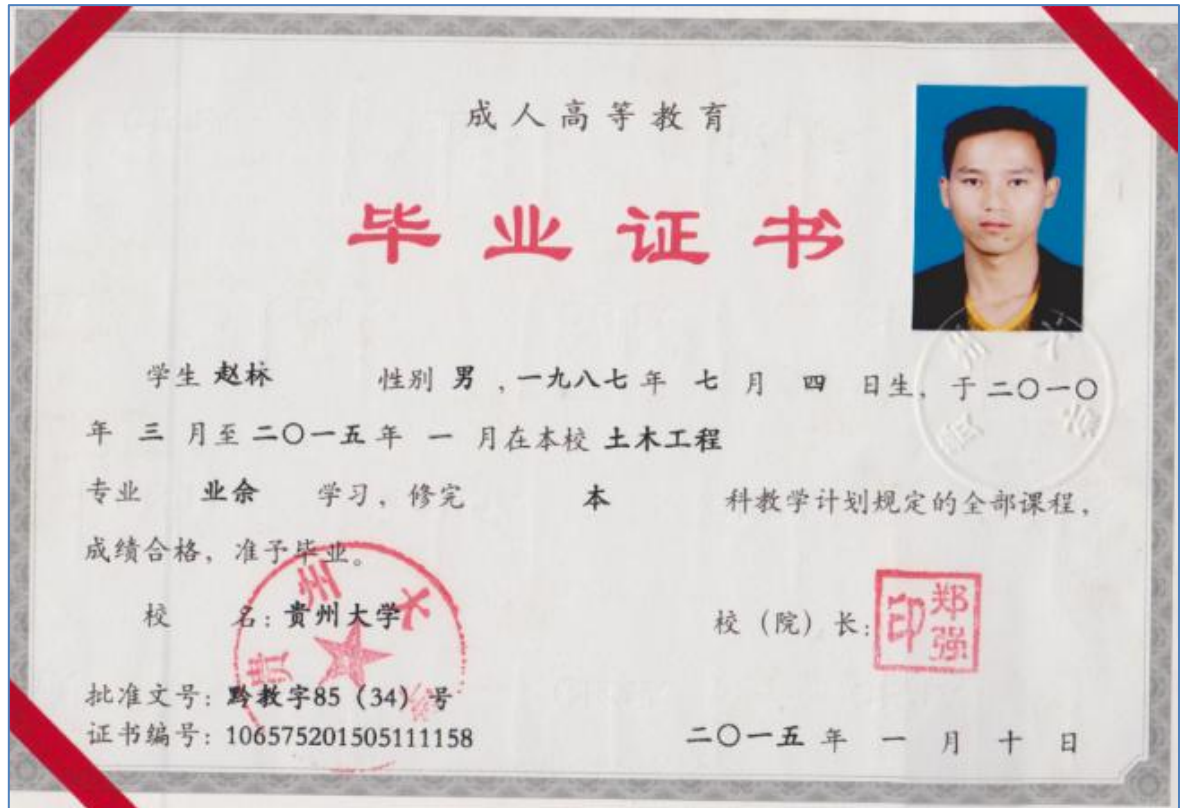 成人高等教育
毕业证书
学生 赵林 性别 男 ，一九八七 年 七 月 四 日生，于 二〇一〇
年 三 月至 二〇一五 年 一 月在本校 土木工程
专业 业余 学习，修完 本 科教学计划规定的全部课程，
成绩合格，准予毕业。
校 名：贵州大学 校（院）长：
郑强印
贵州大学
批准文号：黔教字85（34）号
证书编号：106575201505111158 二〇一五 年 一 月 十 日